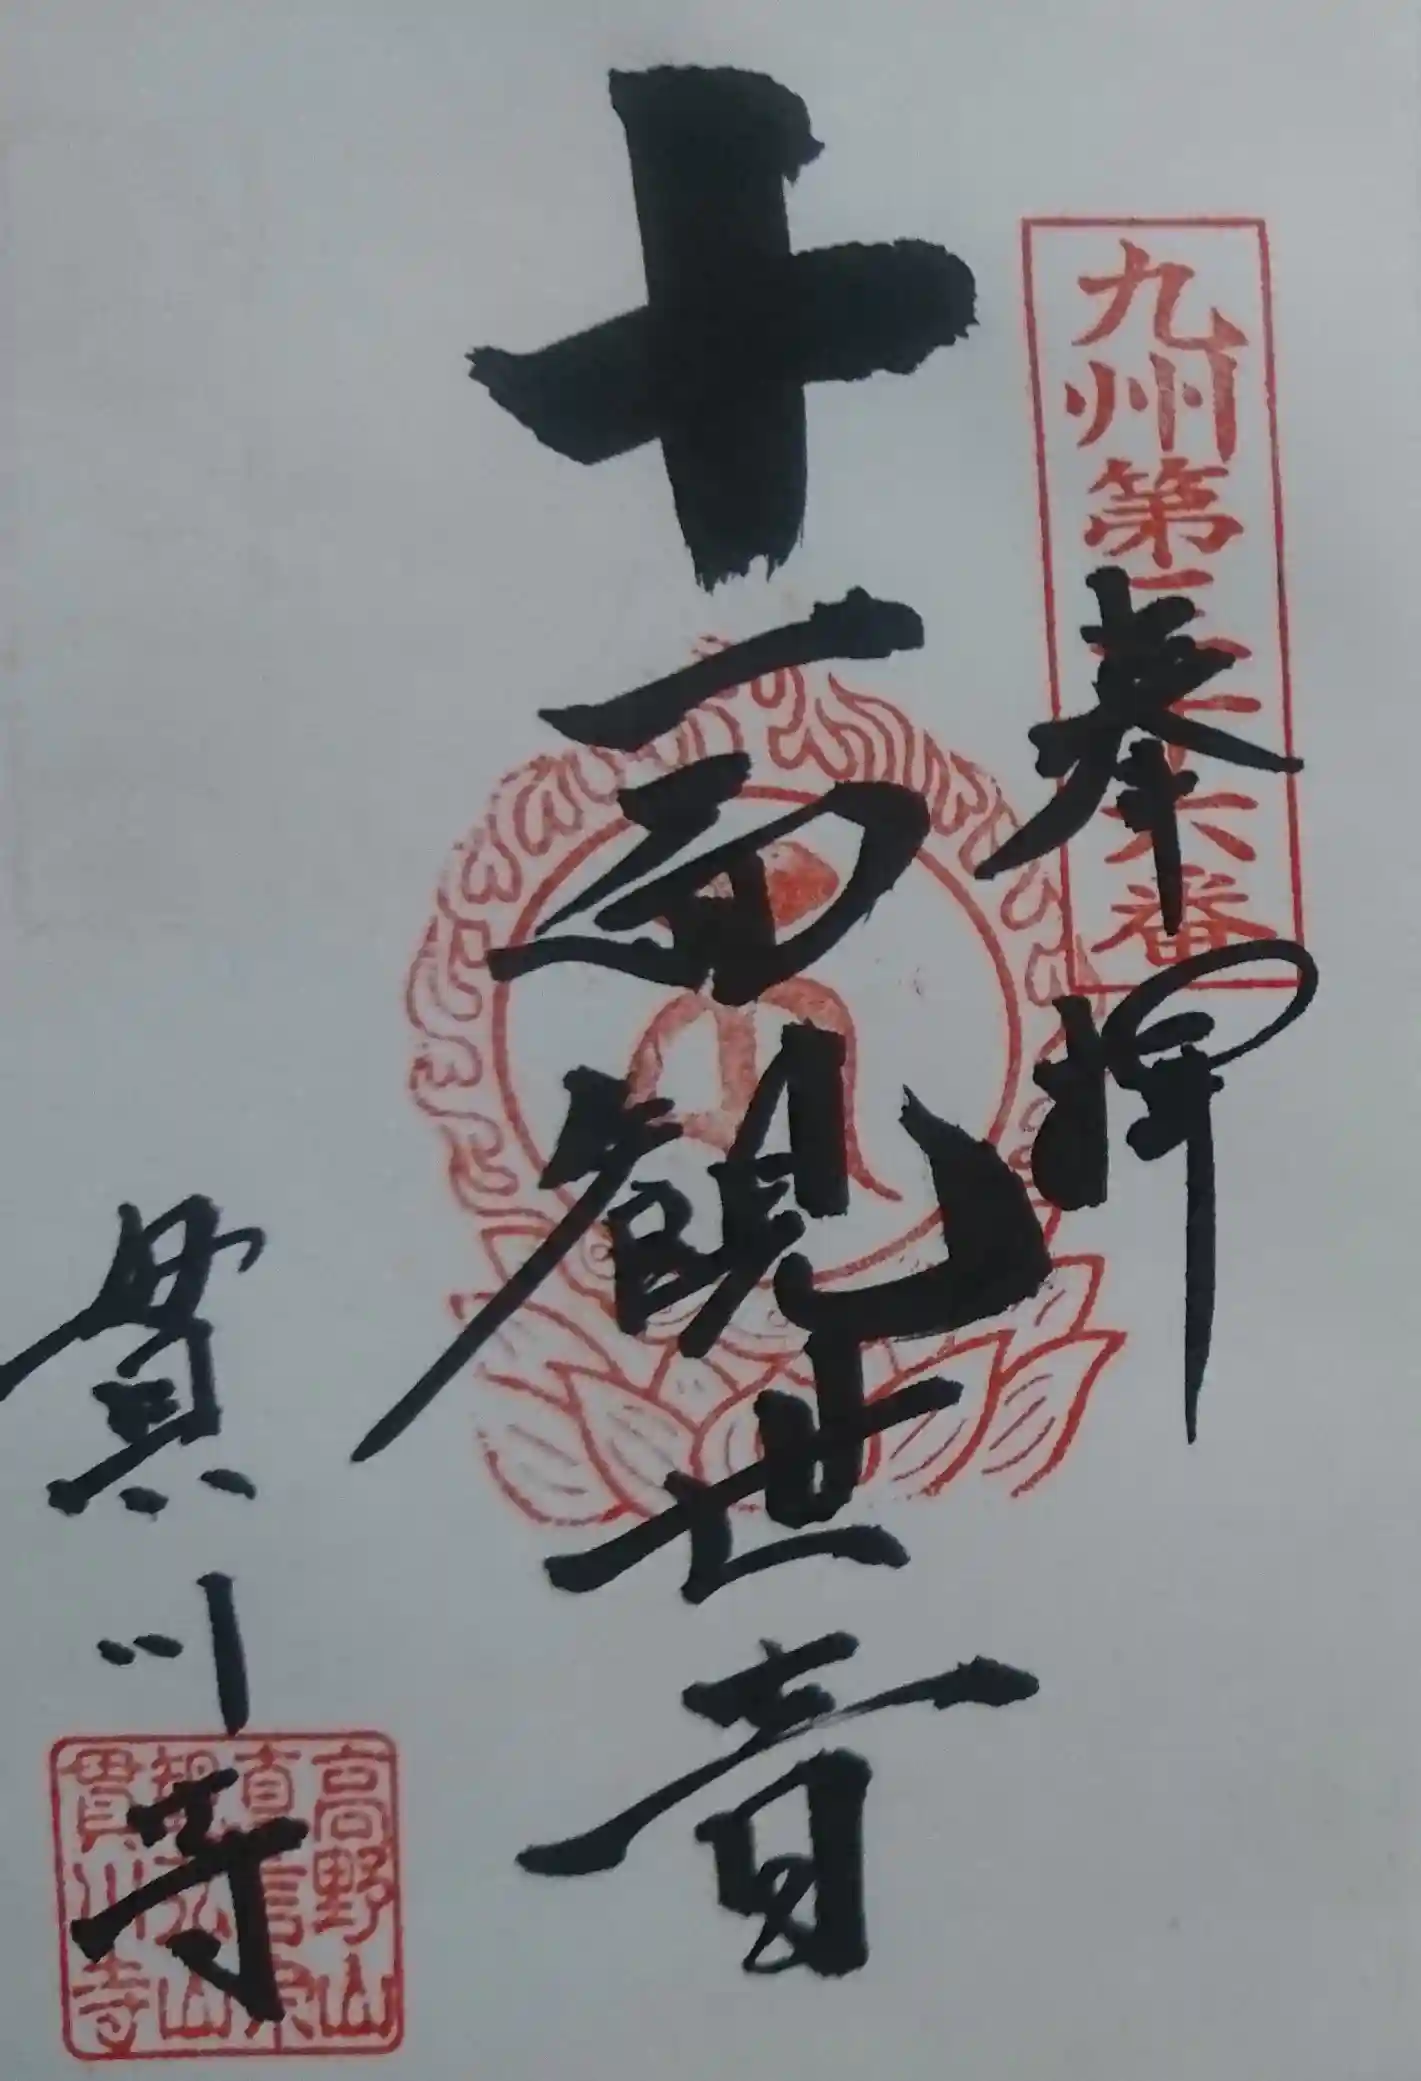 九州第三十六番
奉拝
十一面観世音
貫川寺
高野山
真言宗
弘山
貫川寺